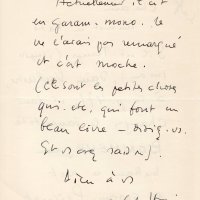 Actuellement, il est
en Garam. mono. Je
ne l'avais pas remarqué
et c'est moche.
(Ce sont les petites choses
qui. etc, qui font un
beau livre —
Et vs avez raison).
Bien à vs